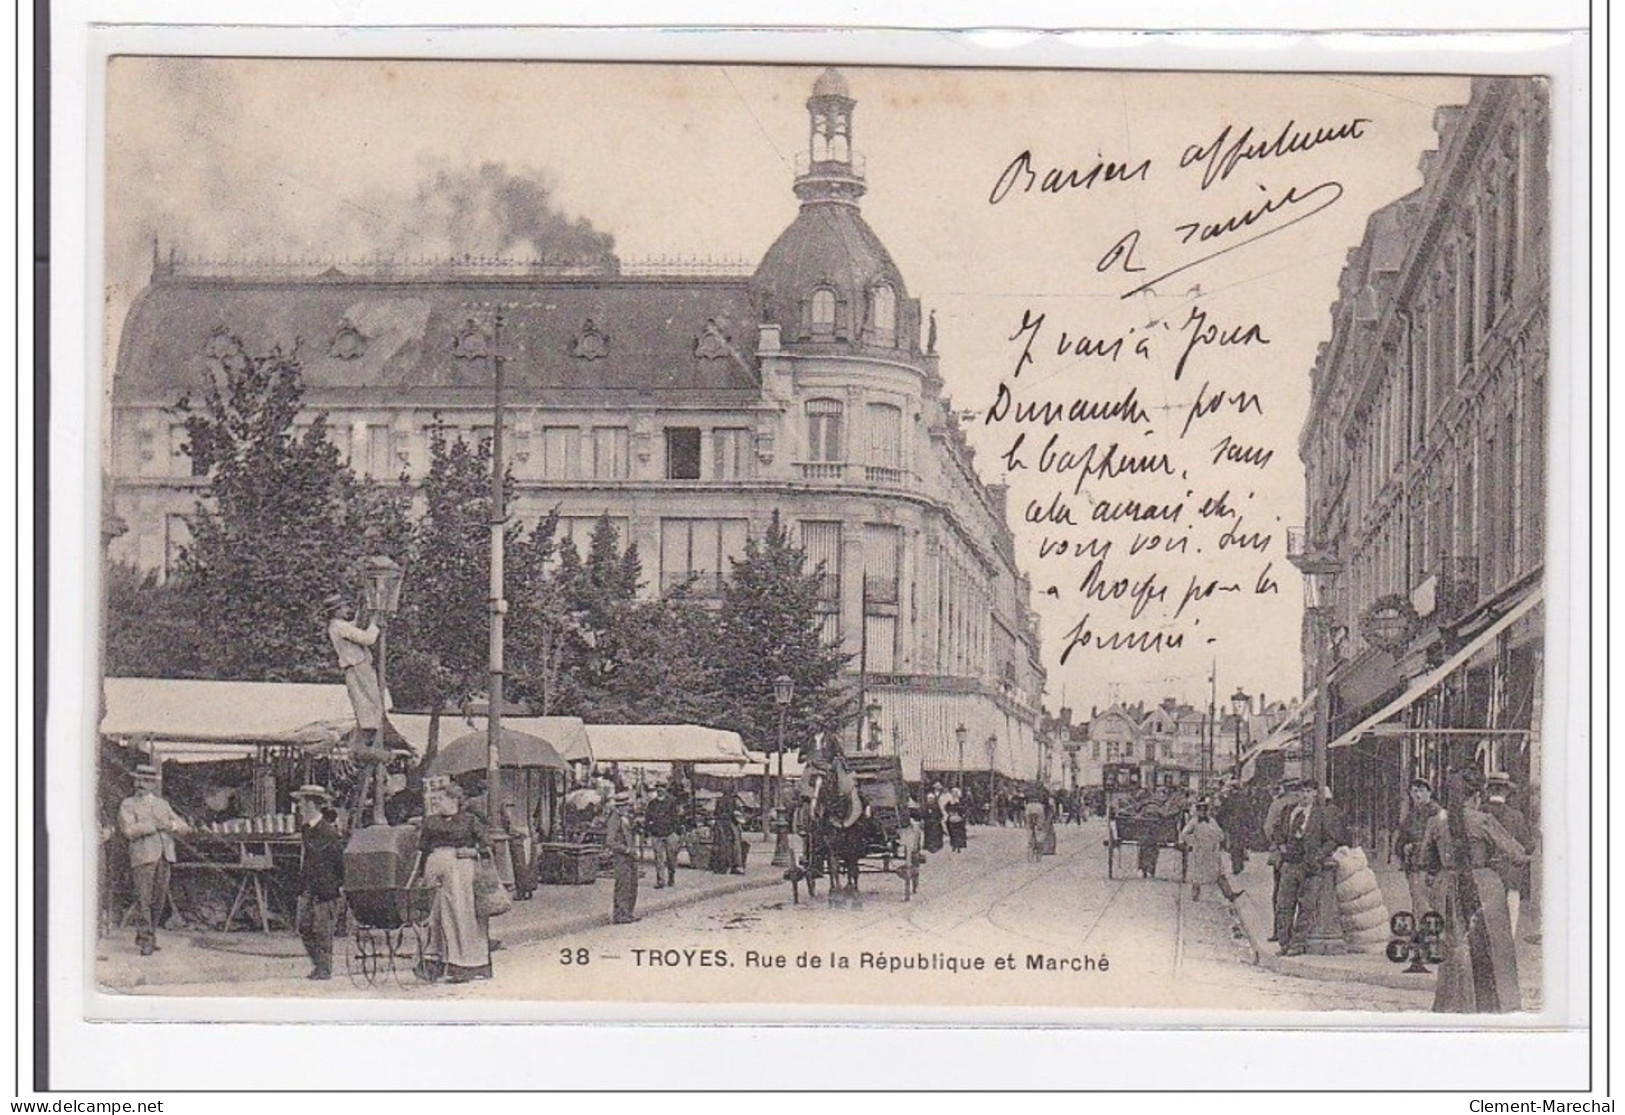 Baisers affectueux
J vais à
Dimanche pour
le baptême, sans
cela aurais été
vous voir. Suis
a Troyes pour la
journée -
38 — TROYES. Rue de la République et Marché
MTIL
delcampe.net
Clement-Marechal